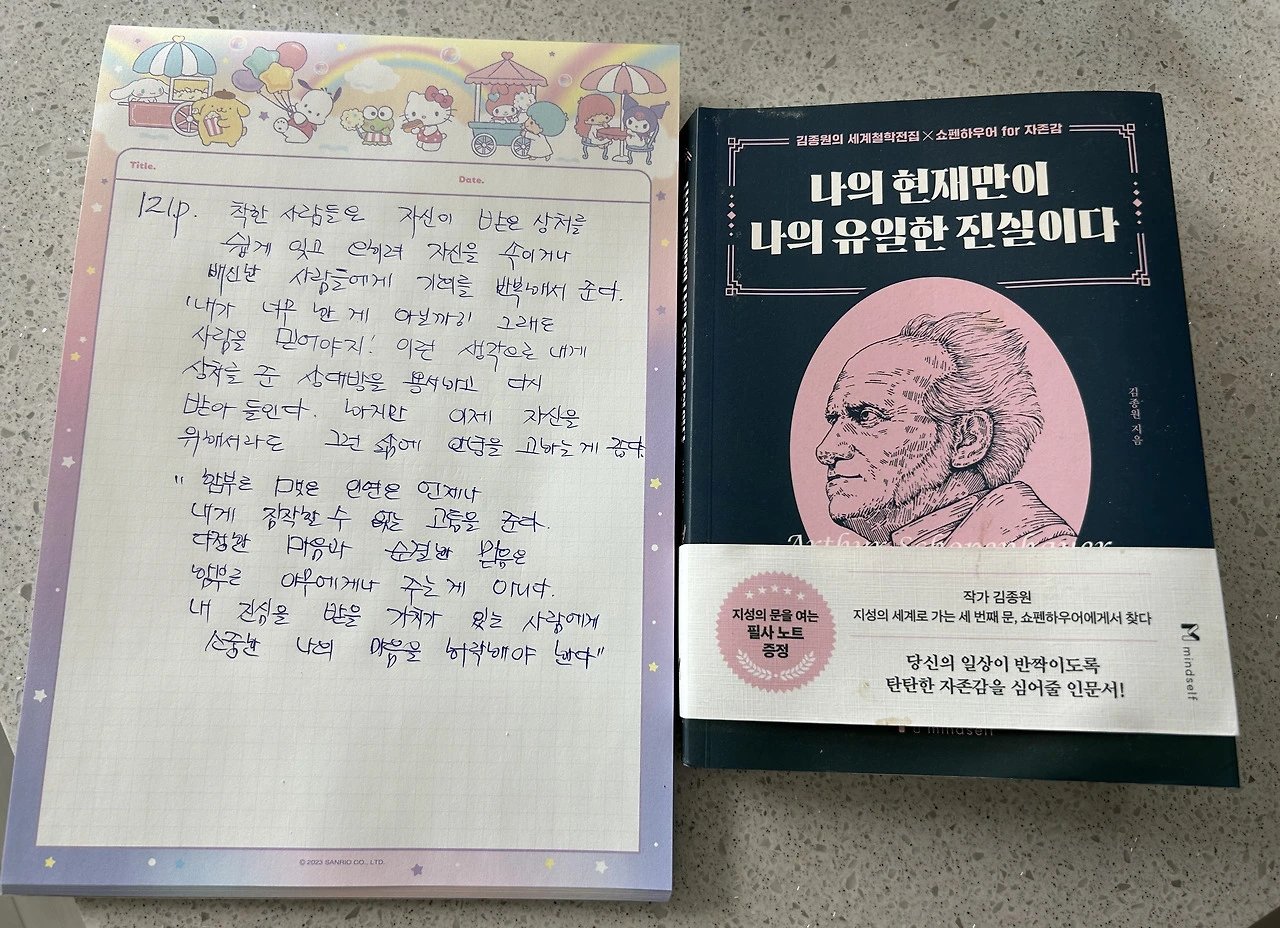 Title.
Date.
121p. 착한 사람들은 자신이 받은 상처를
쉽게 잊고 오히려 자신을 속이거나
배신한 사람들에게 기회를 반복해서 준다.
"내가 너무 한 게 아닐까? 그래도
사람을 믿어야지! 이런 생각으로 내게
상처를 준 상대방을 용서하고 다시
받아 들인다. 하지만 이제 자신을
위해서라도 그런 삶에 안녕을 고하는 게 좋다.
" 함부로 맺은 인연은 언제나
내게 짐작할 수 없는 고통을 준다.
다정한 마음과 순결한 믿음은
함부로 아무에게나 주는 게 아니다.
내 진심을 받을 가치가 있는 사람에게
신중한 나의 마음을 허락해야 한다"
© 2023 SANRIO CO., LTD.
김종원의 세계철학전집×쇼펜하우어 for 자존감
나의 현재만이
나의 유일한 진실이다
김종원 지음
Arthur Schopenhauer
지성의 문을 여는
필사 노트
증정
작가 김종원
지성의 세계로 가는 세 번째 문, 쇼펜하우어에게서 찾다
당신의 일상이 반짝이도록
탄탄한 자존감을 심어줄 인문서!
mindself
mindself